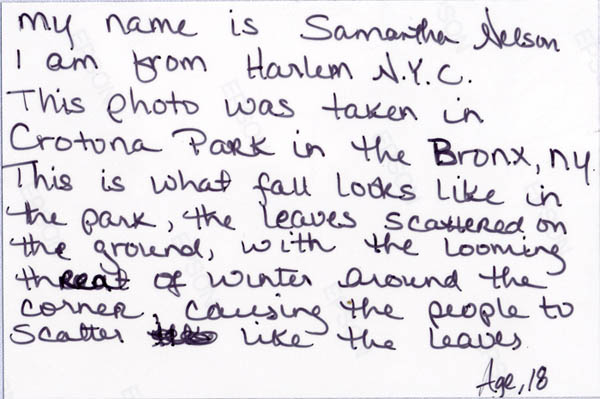 My name is Samantha Nelson
I am from Harlem N.Y.C.
This photo was taken in
Crotona Park in the Bronx, NY.
This is what fall looks like in
the park, the leaves scattered on
the ground, with the looming
threat of winter around the
corner, causing the people to
scatter like the leaves
Age, 18